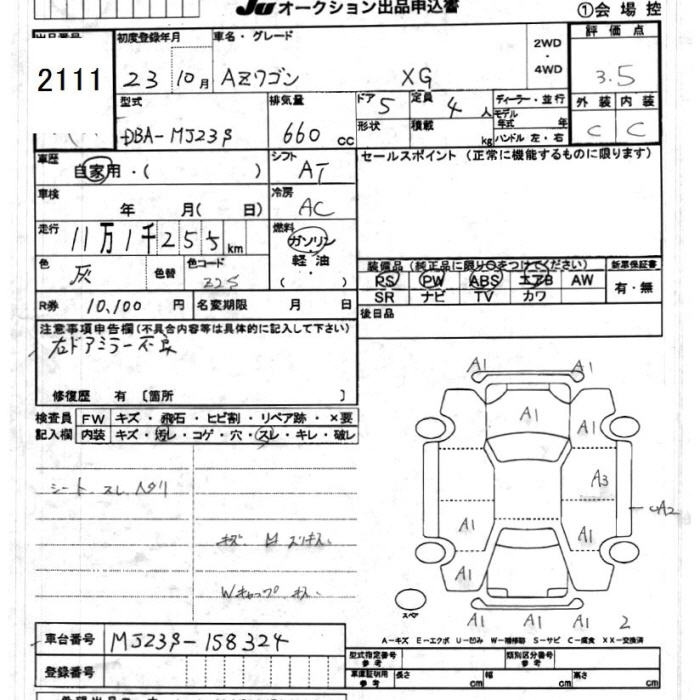 JU オークション出品申込書 ①会場控
初度登録年月 車名・グレード 2WD・4WD 評価点
2111 23 10月 AZワゴン XG 3.5
型式 排気量 ドア 5 定員 4人 ディーラー・並行 外装 内装
DBA-MJ23S 660cc 形状 積載 kg モデル年式 年 C C
ハンドル 左・右
車歴 自家用・( ) シフト AT セールスポイント (正常に機能するものに限ります)
車検 年 月( 日) 冷房 AC
走行 11万1千255km 燃料 ガソリン・軽油 ( )
色 灰 色替 色コード Z2S
装備品(純正品に限り○をつけてください) 新車保証書
PS PW ABS エアB AW 有・無
SR ナビ TV カワ
R券 10,100円 名変期限 月 日 後日品
注意事項申告欄(不具合内容等は具体的に記入して下さい)
右ドアミラー不良
修復歴 有 [箇所 ]
検査員 FW キズ・飛石・ヒビ割・リペア跡・×要
記入欄 内装 キズ・汚レ・コゲ・穴・スレ・キレ・破レ
シート スレ ヘタリ
Wキャップ
A1 A1
A1 A1 A1
A3
A2
A1 A1
A1
スペア
A1 A1 A1 2
A-キズ E-エクボ U-凹み W-補修跡 S-サビ C-腐食 XX-交換済
車台番号 MJ23S-158324
型式指定番号 参考 類別区分番号 参考
登録番号 車庫証明用 参考 長さ cm 幅 cm 高さ cm